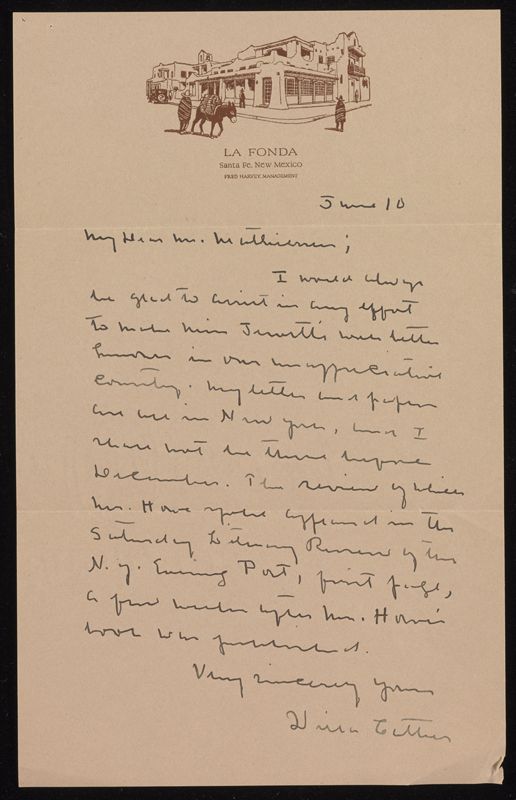 LA FONDA
Santa Fe, New Mexico
FRED HARVEY, MANAGEMENT
June 10
My Dear Mr. Mathiessen;
I would always
be glad to assist in any effort
to make Miss Jewett's work better
known in our unappreciative
country. My letters and papers
are all in New York, and I
shall not be there before
December. The review of which
Mr. Howe spoke appeared in the
Saturday Literary Review of the
N. Y. Evening Post, first page,
a few weeks after Mr. Howe's
book was published.
Very sincerely yours
Willa Cather